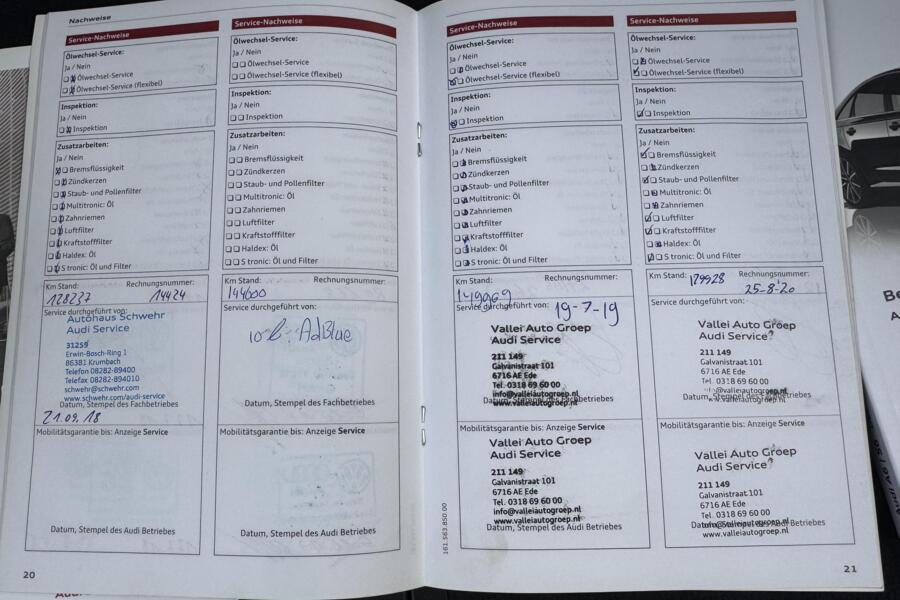 Nachweise
Service-Nachweise
Ölwechsel-Service:
Ja / Nein
Ölwechsel-Service
Ölwechsel-Service (flexibel)
Inspektion:
Ja / Nein
Inspektion
Zusatzarbeiten:
Ja / Nein
Bremsflüssigkeit
Zündkerzen
Staub- und Pollenfilter
Multitronic: Öl
Zahnriemen
Luftfilter
Kraftstofffilter
Haldex: Öl
S tronic: Öl und Filter
Km Stand: Rechnungsnummer:
128237 14424
Service durchgeführt von:
Autohaus Schwehr
Audi Service
31259
Erwin-Bosch-Ring 1
86381 Krumbach
Telefon 08282-89400
Telefax 08282-894010
schwehr@schwehr.com
www.schwehr.com/audi-service
Datum, Stempel des Fachbetriebes
21.09.18
Mobilitätsgarantie bis: Anzeige Service
Datum, Stempel des Audi Betriebes
20
Service-Nachweise
Ölwechsel-Service:
Ja / Nein
Ölwechsel-Service
Ölwechsel-Service (flexibel)
Inspektion:
Ja / Nein
Inspektion
Zusatzarbeiten:
Ja / Nein
Bremsflüssigkeit
Zündkerzen
Staub- und Pollenfilter
Multitronic: Öl
Zahnriemen
Luftfilter
Kraftstofffilter
Haldex: Öl
S tronic: Öl und Filter
Km Stand: Rechnungsnummer:
144600
Service durchgeführt von:
AdBlue
Datum, Stempel des Fachbetriebes
Mobilitätsgarantie bis: Anzeige Service
Datum, Stempel des Audi Betriebes
Service-Nachweise
Ölwechsel-Service:
Ja / Nein
Ölwechsel-Service
Ölwechsel-Service (flexibel)
Inspektion:
Ja / Nein
Inspektion
Zusatzarbeiten:
Ja / Nein
Bremsflüssigkeit
Zündkerzen
Staub- und Pollenfilter
Multitronic: Öl
Zahnriemen
Luftfilter
Kraftstofffilter
Haldex: Öl
S tronic: Öl und Filter
Km Stand: Rechnungsnummer:
149969
Service durchgeführt von: 19-7-19
Vallei Auto Groep
Audi Service
211 149
Galvanistraat 101
6716 AE Ede
Tel. 0318 69 60 00
info@valleiautogroep.nl
Datum, Stempel des Fachbetriebes
www.valleiautogroep.nl
Mobilitätsgarantie bis: Anzeige Service
Vallei Auto Groep
Audi Service
211 149
Galvanistraat 101
6716 AE Ede
Tel. 0318 69 60 00
info@valleiautogroep.nl
www.valleiautogroep.nl
Datum, Stempel des Audi Betriebes
161.563.850.00
Service-Nachweise
Ölwechsel-Service:
Ja / Nein
Ölwechsel-Service
Ölwechsel-Service (flexibel)
Inspektion:
Ja / Nein
Inspektion
Zusatzarbeiten:
Ja / Nein
Bremsflüssigkeit
Zündkerzen
Staub- und Pollenfilter
Multitronic: Öl
Zahnriemen
Luftfilter
Kraftstofffilter
Haldex: Öl
S tronic: Öl und Filter
Km Stand: Rechnungsnummer:
179928 25-8-20
Service durchgeführt von:
Vallei Auto Groep
Audi Service
211 149
Galvanistraat 101
6716 AE Ede
Tel. 0318 69 60 00
info@valleiautogroep.nl
Datum, Stempel des Fachbetriebes
www.valleiautogroep.nl
Mobilitätsgarantie bis: Anzeige Service
Vallei Auto Groep
Audi Service
211 149
Galvanistraat 101
6716 AE Ede
Tel. 0318 69 60 00
info@valleiautogroep.nl
Datum, Stempel des Audi Betriebes
www.valleiautogroep.nl
21